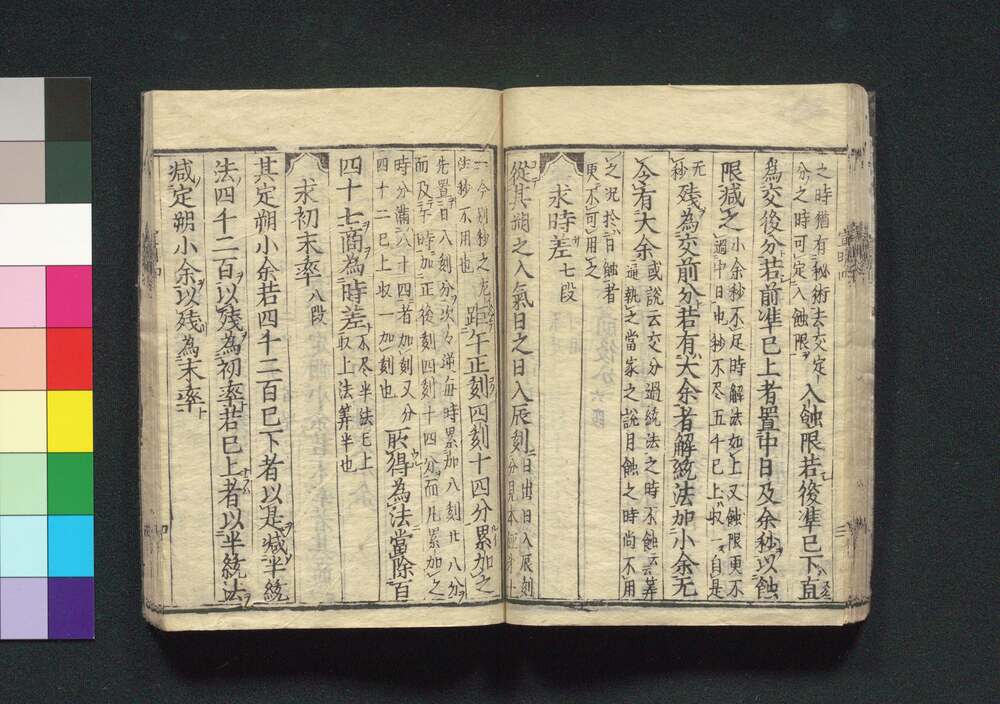 之時猶有秘術去交定
分之時可定入蝕限 入蝕限若後準已下直
為交後分若前準已上者置中日及余秒以蝕
限減之 小余秒不足時解法加上又蝕限更不
過中日也 秒不尽五千已上収一自是
無秒 残為交前分若有大余者解統法加小余无
今有大余 或説云交分過統法之時不蝕云々筭
逼執之當家之説月蝕之時尚不用
之況於日蝕者
更不可用之
求時差 七段
從其朔之入氣日之日入辰刻 日出日入辰刻
分見
一今刻秒之
法秒不用也 距午正刻四刻十四分累加之
先置日入刻分次々逆毎時累加八刻廿八分
而及午時加正後刻四刻十四分而凡累加之
時分満八十四者加刻又分
四十二已上収一加刻也 所得為法當除百
四十七商為時差 不尽半法已上
収上法筭半也
求初末率 八段
其定朔小余若四千二百已下者以是減半統
法四千二百以残為初率若已上者以半統法
減定朔小余以残為末率